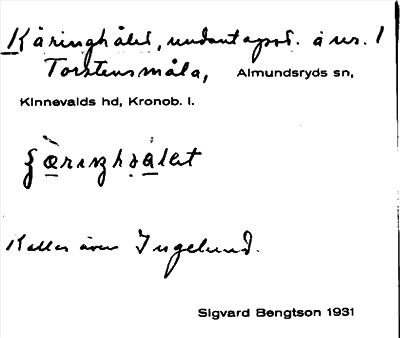 Käringhålet, undantagsst. å nr. 1
Torstensmåla, Almundsryds sn,
Kinnevalds hd, Kronob. l.
Kallas även Ingelund.
Sigvard Bengtson 1931